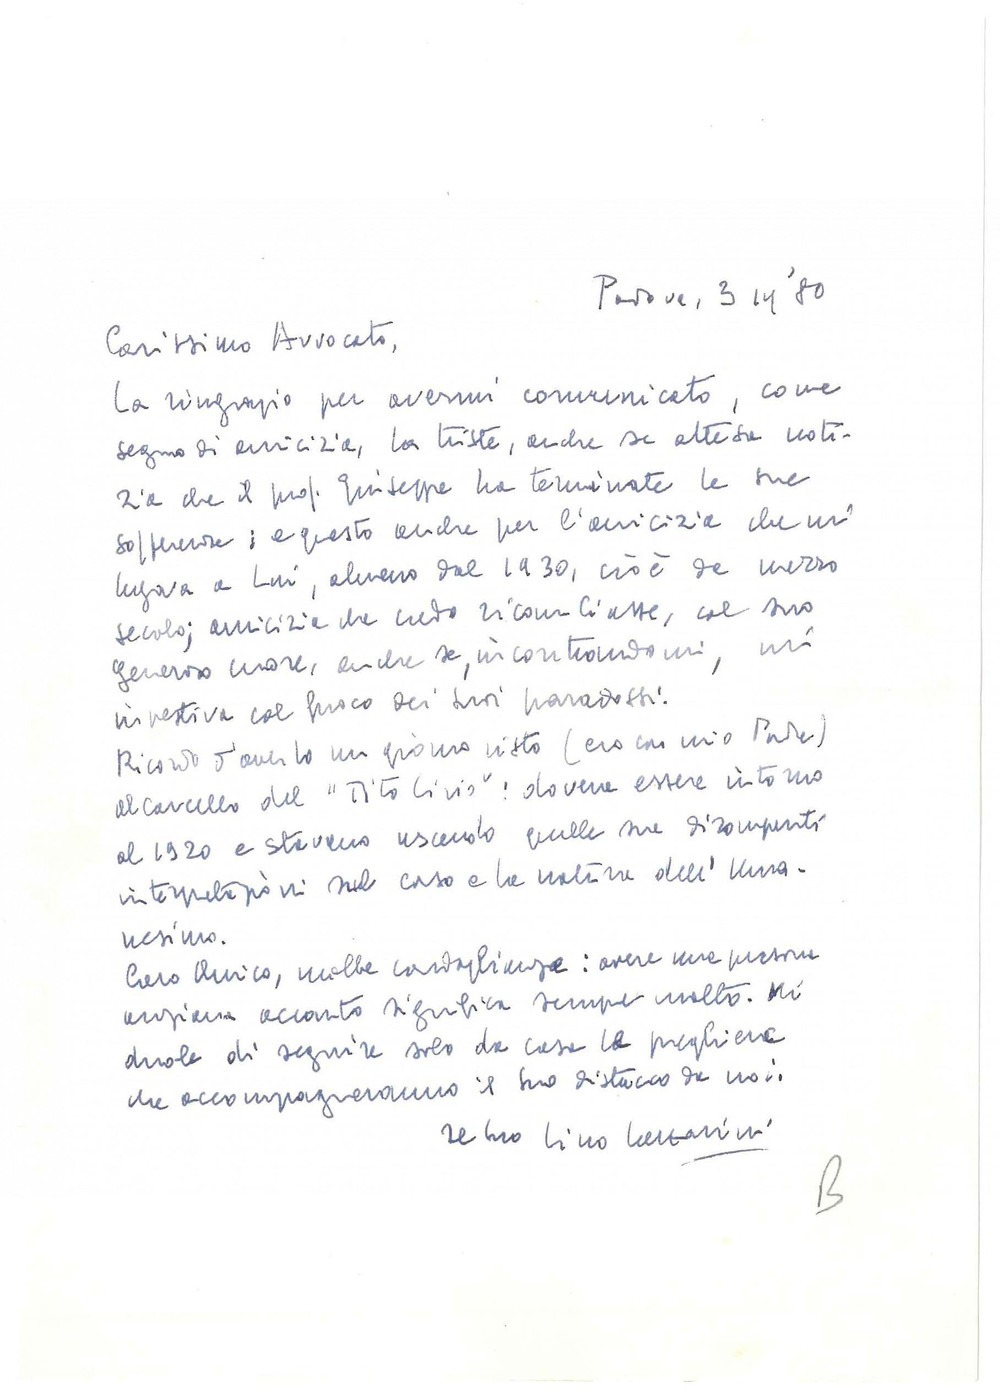 Padova, 3 IV '80
Carissimo Avvocato,
La ringrazio per avermi comunicato, come
segno di amicizia, la triste, anche se attesa noti-
zia che il prof. Giuseppe ha terminate le sue
sofferenze; e questo anche per l'amicizia che mi
legava a Lui, almeno dal 1930, cioè da mezzo
secolo; amicizia che credo ricambiasse, col suo
generoso cuore, anche se, incontrandomi, mi
investiva col fuoco dei suoi paradossi.
Ricordo d'averlo un giorno visto (ero con mio Padre)
al cancello del "Tito Livio": doveva essere intorno
al 1920 e stavano uscendo quelle sue dirompenti
interpretazioni sul caso e la natura dell'Uma-
nesimo.
Caro Amico, molte condoglianze: avere una persona
anziana accanto significa sempre molto. Mi
duole di seguire solo da casa le preghiere
che accompagneranno il Suo distacco da noi.
Suo Lino Lazzarini
B